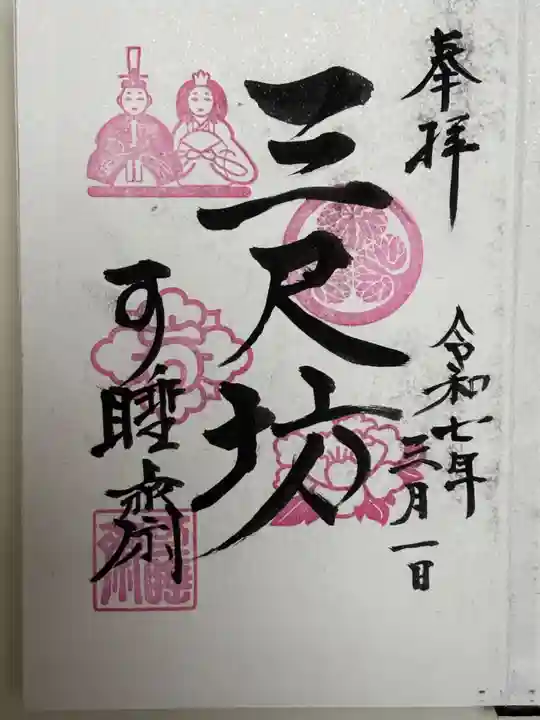 奉拝
令和七年
三月一日
三尺坊
可睡齋